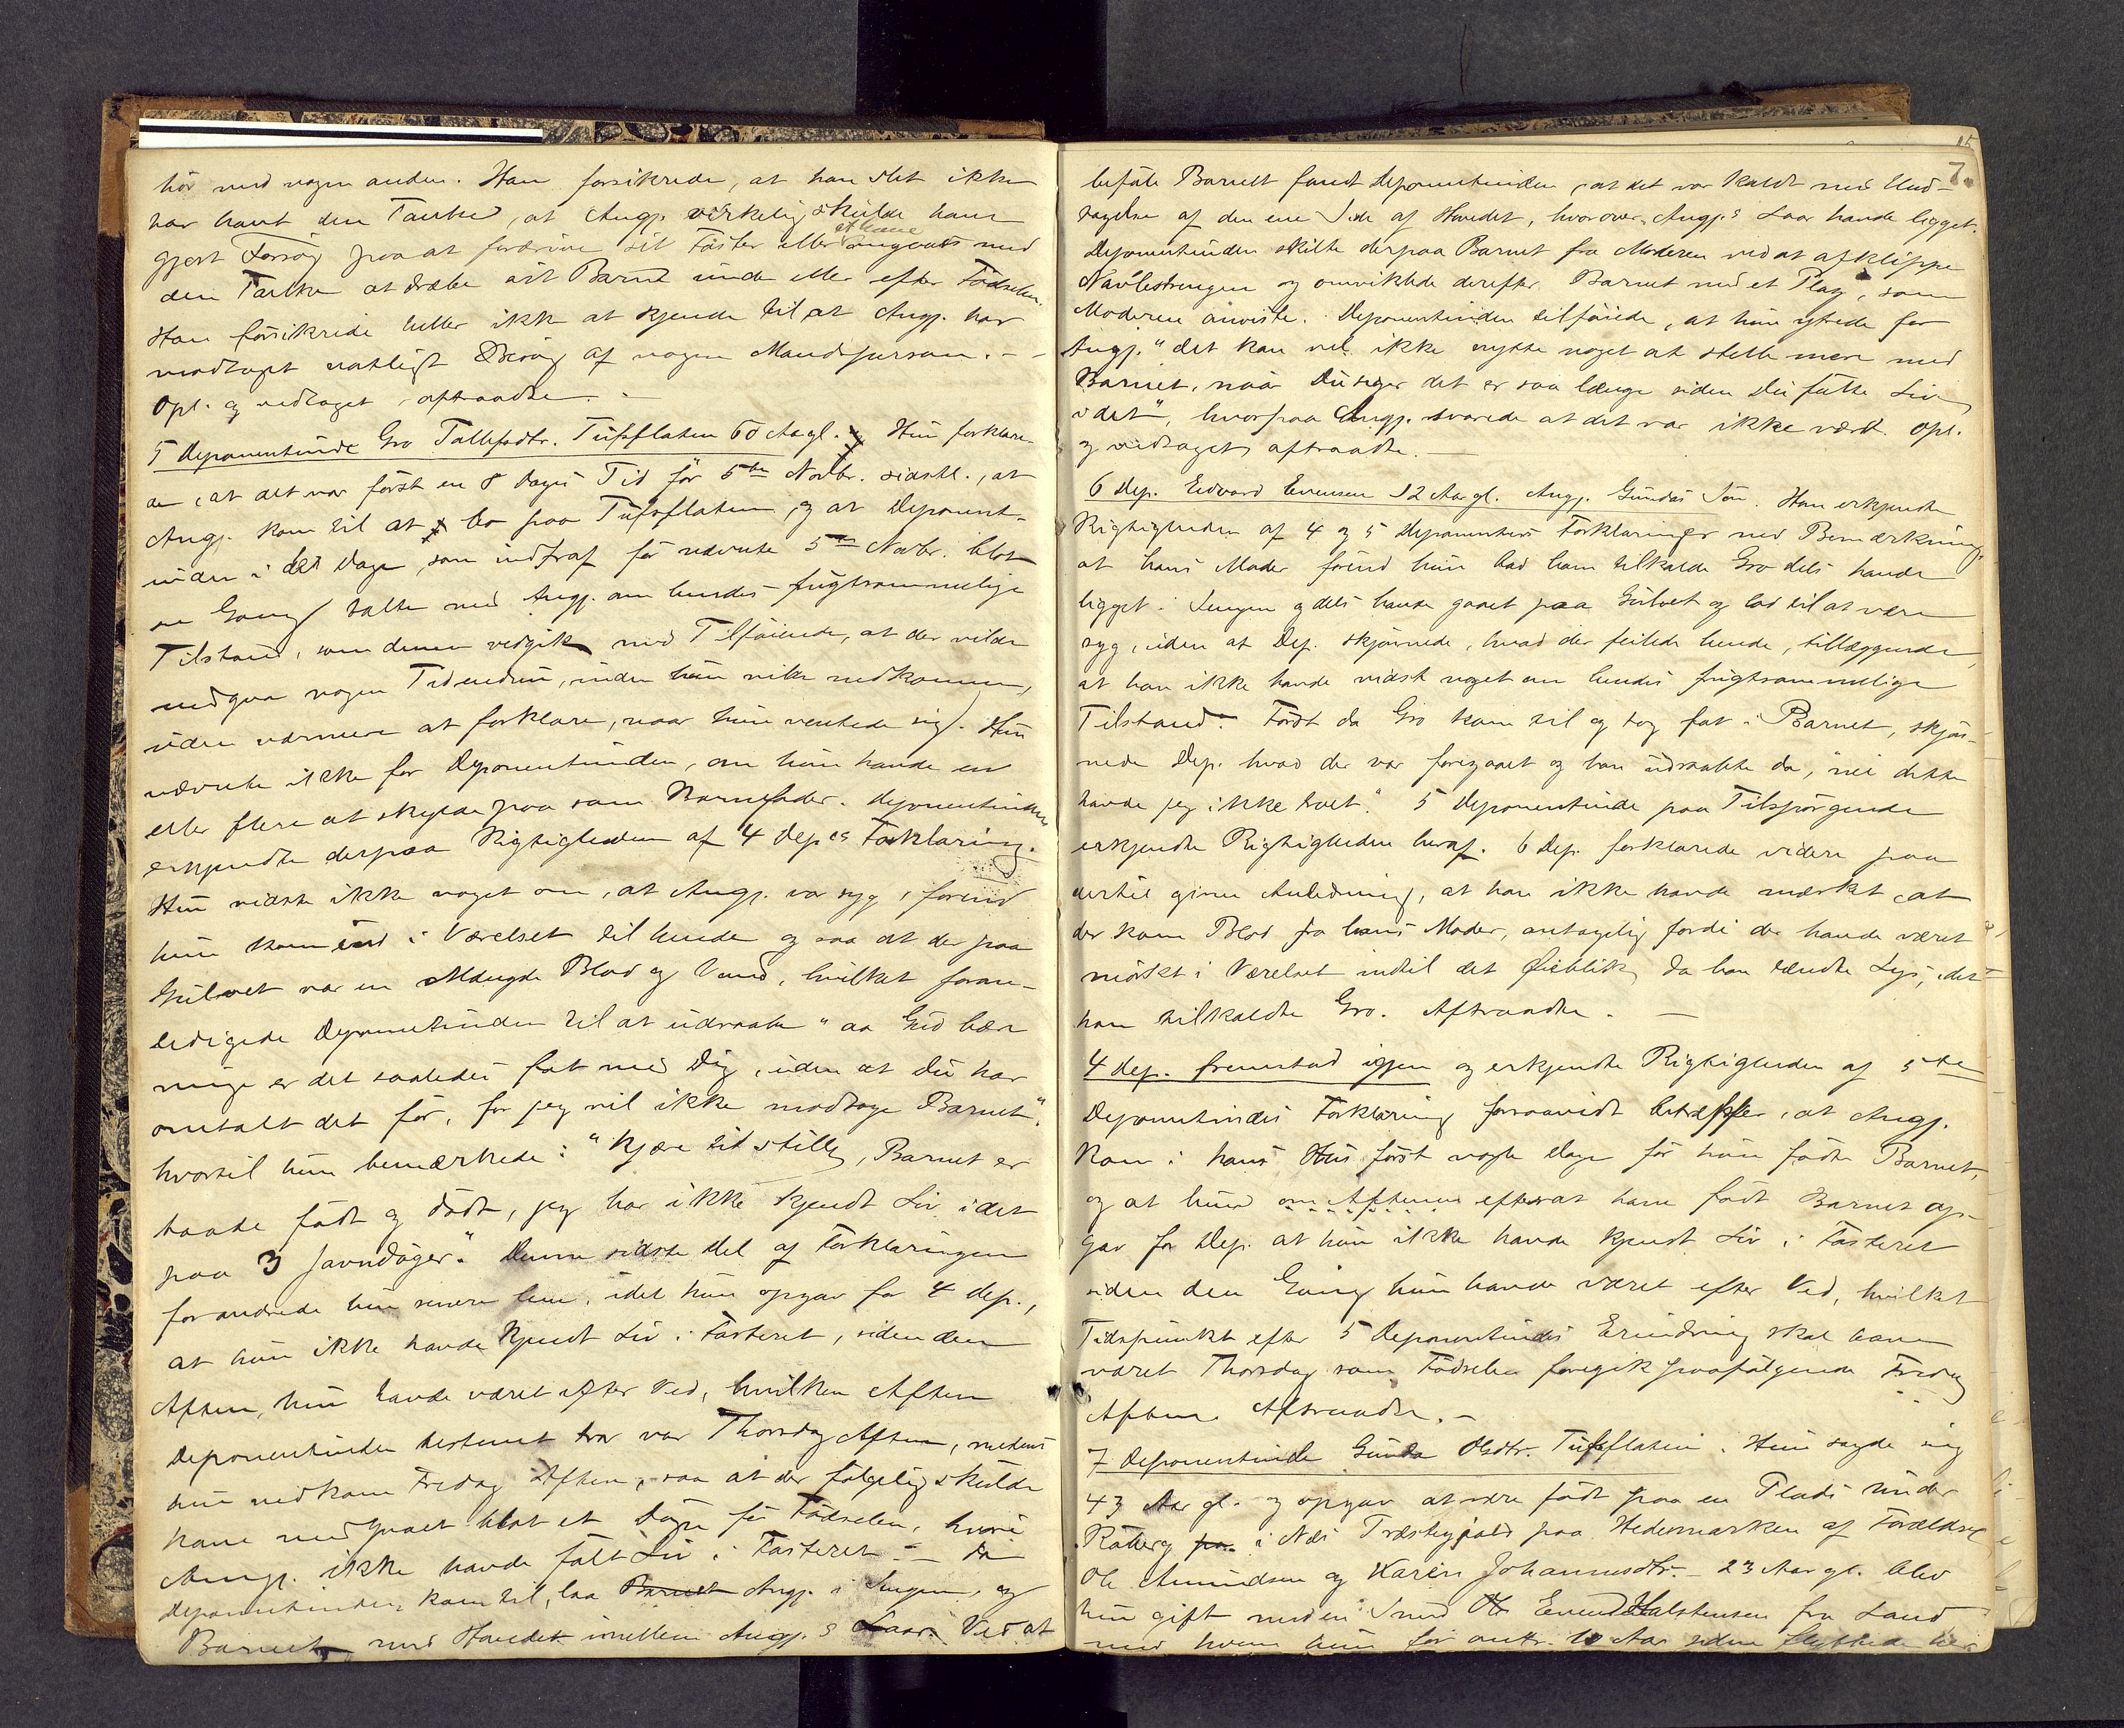 hör med nogen anden. Han forsikrede, at han slet ikke
har havt den Tanke, at Angj. virkelig skulde have
gjort Forsög paa at fordrive sit Foster eller at have omgaaets med
den Tanke at dræbe sit Barn under eller efter Födselen.
Han forsikrede heller ikke at kjende til at Angj. har
modtaget natligt Besög af nogen Mandsperson. -
Opl. og vedtaget, aftraadte. -
5 Deponentinde Gro Tollefsdtr. Tufsflaten 60 Aar gl. Hun forklare-
de, at det var först en 8 Dages Tid för 5te Novbr. sidstl., at
Angj. kom til at bo paa Tufsflaten, og at Deponent-
inden i de Dage, som indtraf för nævnte 5te Novbr. blot
en Gang talte med Angj. om hendes frugtsommelige
Tilstand, som denne vedgik med Tilföiende, at der vilde
medgaa nogen Tid endnu, inden hun vilde nedkomme,
uden nærmere at forklare, naar hun ventede sig. Hun
nævnte ikke for Deponentinden, om hun havde en
eller flere at skylde paa som Barnefader. Deponentinden
erkjendte derpaa Rigtigheden af 4 Dep.s Forklaring.
Hun vidste ikke noget om, at Angj. var syg, forend
hun kom ind i Værelset til hende og saa at der paa
Gulvet var en Mængde Blod og Vand, hvilket foran-
ledigede Deponentinden til at udraabe "aa Gud bære
mig er det saaledes fat med Dig, uden at Du har
omtalt det för, for jeg vil ikke modtage Barnet",
hvortil hun bemærkede: "Kjære ti stille, Barnet er
baade födt og dödt, jeg har ikke kjendt Liv i det
paa 3 Javndöger." Denne sidste Del af Forklaringen
forandrede hun senere hen, idet hun opgav for 4 Dep.,
at hun ikke havde kjendt Liv i Fosteret, siden den
Aften, hun havde været efter Ved, hvilken Aften
Deponentinden bestemt tror var Thorsdag Aften, medens
hun nedkom Fredag Aften, saa at der fölgelig skulde
have medgaaet blot et Dögn för Födselen, hvori
Angj. ikke havde fölt Liv i Fosteret. - Da
Deponentinden kom til, laa Barnet Angj. i Sengen, og
Barnet med Hovedet imellem Angj.s Laar. Ved at
7.
beföle Barnet fandt Deponentinden, at det var koldt med Und-
tagelse af den ene Side af Hovedet, hvorover Angj.s Laar havde ligget.
Deponentinden skilte derpaa Barnet fra Moderen ved at afklippe
Navlestrengen og omviklede derefter Barnet med et Plag, som
Moderen anviste. Deponentinden tilföiede, at hun ytrede for
Angj. "det kan vel ikke nytte noget at stelle mere med
Barnet, naar Du siger det er saa længe siden Du fölte Liv
i det", hvorpaa Angj. svarede at det var ikke værd. Opl.
og vedtaget, aftraadte. -
6 Dep. Edvard Evensen 12 Aar gl. Angj. Gundas Sön. Han erkjendte
Rigtigheden af 4 og 5 Deponenters Forklaringer med Bemærkning,
at hans Moder förend hun bad ham tilkalde Gro dels havde
ligget i Sengen og dels havde gaaet paa Gulvet og lod til at være
syg, uden at Dep. skjönnede, hvad der feilede hende, tillæggende,
at han ikke havde vidst noget om hendes frugtsommelige
Tilstand. Först da Gro kom til og tog fat i Barnet, skjön-
nede Dep. hvad der var foregaaet og han udraabte da, "nei dette
havde jeg ikke troet." 5 Deponentinde paa Tilspörgende
erkjendte Rigtigheden heraf. 6 Dep. forklarede videre paa
dertil given Anledning, at han ikke havde mærket, at
der kom Blod fra hans Moder, antagelig fordi der havde været
mörkt i Værelset indtil det Öieblik, da han tændte Lys, idet
han tilkaldte Gro. Aftraadte. -
4 Dep. fremstod igjen og erkjendte Rigtigheden af 5te
Deponentindes Forklaring forsaavidt betræffer, at Angj.
kom i hans Hus först nogle Dage för hun födte Barnet,
og at hun om Aftenen efterat have födt Barnet op-
gav for Dep. at hun ikke havde kjendt Liv i Fosteret
siden den Gang hun havde været efter Ved, hvilket
Tidspunkt efter 5 Deponentindes Erindring skal have
været Thorsdag som Födselen foregik paafölgende Fredag
Aften. Aftraadte. -
7 Deponentinde Gunda Olsdtr. Tufsflaten. Hun sagde sig
43 Aar gl. og opgav at være födt paa en Plads under
Roberg paa i Næs Præstegjæld paa Hedemarken af Forældre
Ole Amundsen og Karen Johannesdtr. - 23 Aar gl. blev
hun gift med en Smed Ole Even Halstensen fra Land
med hvem hun for omtr. 10 Aar siden flyttede her